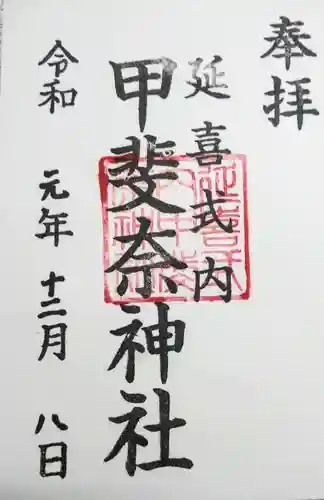 奉拝
延喜式内
甲斐奈神社
令和 元年 十二月 八日